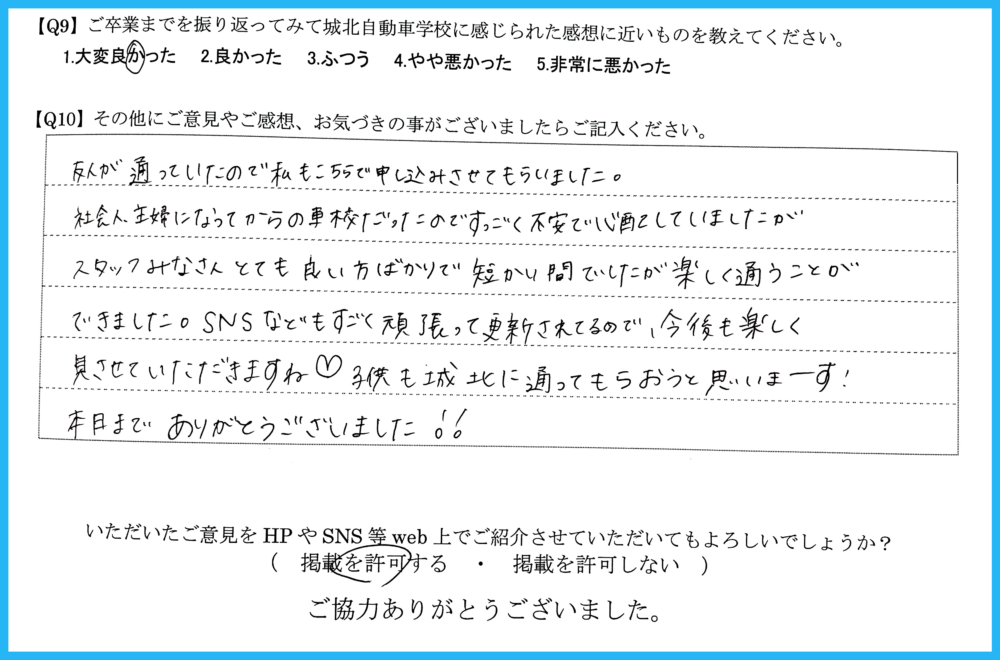 【Q9】ご卒業までを振り返ってみて城北自動車学校に感じられた感想に近いものを教えてください。
1.大変良かった 2.良かった 3.ふつう 4.やや悪かった 5.非常に悪かった
【Q10】その他にご意見やご感想、お気づきの事がございましたらご記入ください。
友人が通っていたので私もこちらで申し込みさせてもらいました。
社会人、主婦になってからの車校だったのですっごく不安で心配していましたが
スタッフみなさんとても良い方ばかりで短かい間でしたが楽しく通うことが
できました。SNSなどもすごく頑張って更新されてるので、今後も楽しく
見させていただきますね♡子供も城北に通ってもらおうと思いまーす!
本日までありがとうございました!!
いただいたご意見をHPやSNS等web上でご紹介させていただいてもよろしいでしょうか?
( 掲載を許可する ・ 掲載を許可しない )
ご協力ありがとうございました。